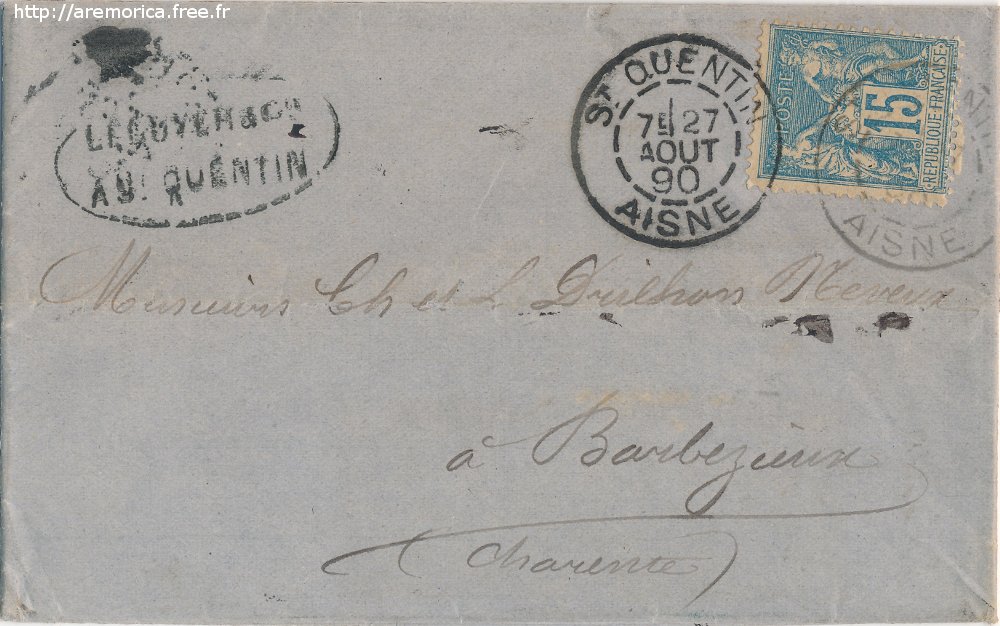 http://aremorica.free.fr
A St. QUENTIN
ST QUENTIN
7E 27
AOUT
90
AISNE
POSTE
15
REPUBLIQUE FRANCAISE
AISNE
Messieurs Ch et L Drilhon Neveux
à Barbezieux
(Charente)